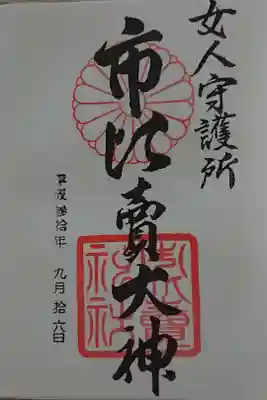 女人守護所
市比賣大神
平成參拾年 九月拾六日
市比賣
神社